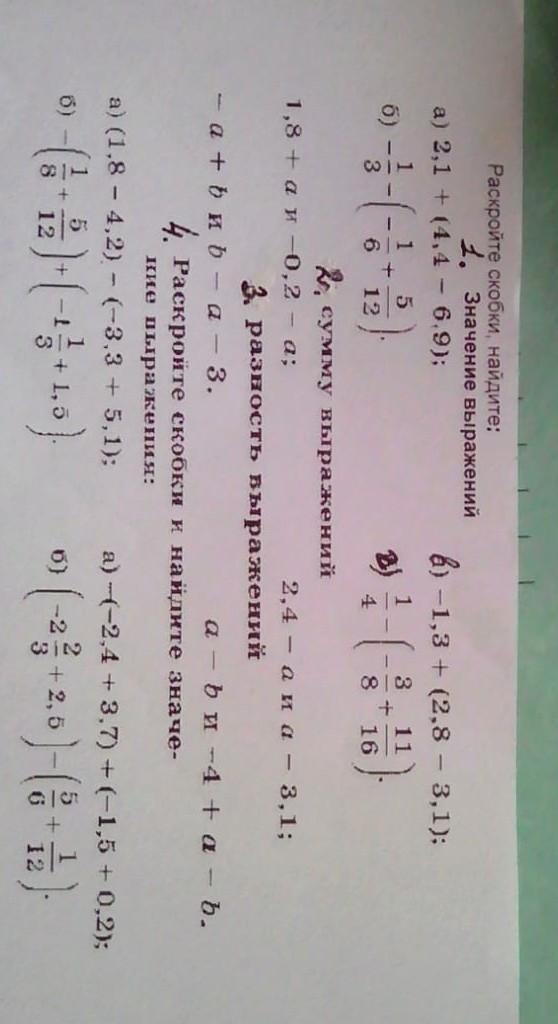 Раскройте скобки, найдите:
1. Значение выражений
а) 2,1 + (4,4 − 6,9); в) −1,3 + (2,8 − 3,1);
б) −1/3 − (−1/6 + 5/12). г) 1/4 − (−3/8 + 11/16).
2. сумму выражений
1,8 + a и −0,2 − a; 2,4 − a и a − 3,1;
3. разность выражений
− a + b и b − a − 3. a − b и −4 + a − b.
4. Раскройте скобки и найдите значе-
ние выражения:
а) (1,8 − 4,2) − (−3,3 + 5,1); а) −(−2,4 + 3,7) + (−1,5 + 0,2);
б) −(1/8 + 5/12) + (−1 1/3 + 1,5). б) (−2 2/3 + 2,5) − (5/6 + 1/12).